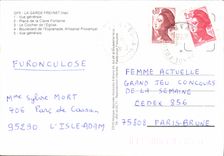 DF9 - LA GARDE-FREINET (Var)
1 - Vue générale
2 - Place de la Claire Fontaine
3 - Le Clocher de l'Eglise
4 - Boulevard de l'Esplanade, Artisanat Provençal
5 - Vue générale
FURONCULOSE
Mme Sylvie MORT
706 Parc de Cassan
95290 L'ISLE-ADAM
FEMME ACTUELLE
GRAND JEU CONCOURS
DE LA SEMAINE
CEDEX 256
75808 PARIS-BRUNE